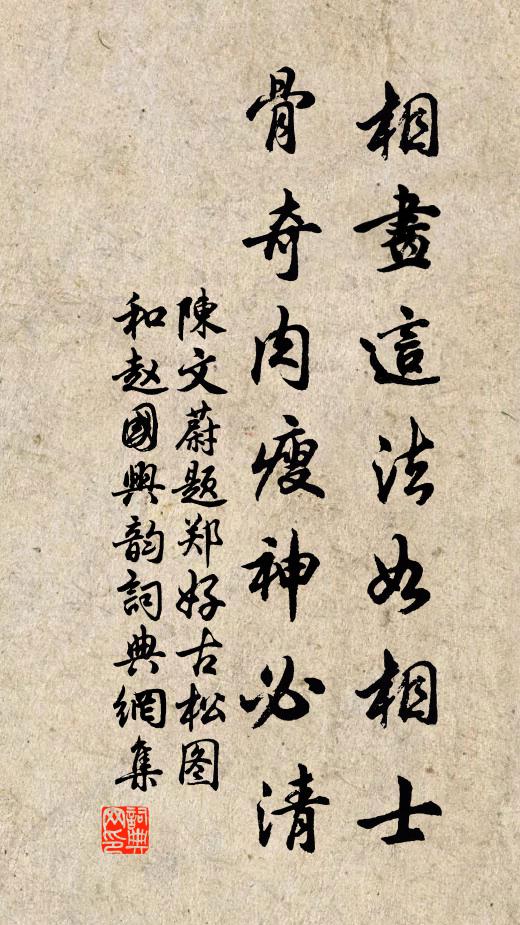 相畫這法如相士
骨奇肉瘦神必清
陳文蔚题郑好古松图
和赵國興韵詞典網集
詞典网印